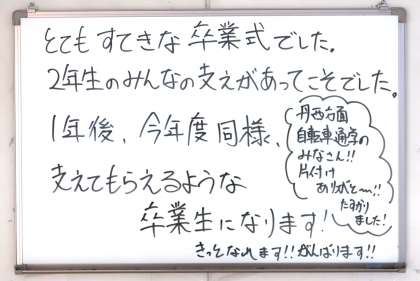 とてもすてきな卒業式でした。
2年生のみんなの支えがあってこそでした。
1年後、今年度同様、
支えてもらえるような
卒業生になります!
きっとなれます!!がんばります!!
丹西方面
自転車通学の
みなさん!!
片付け
ありがと〜!!
たすかり
ました!